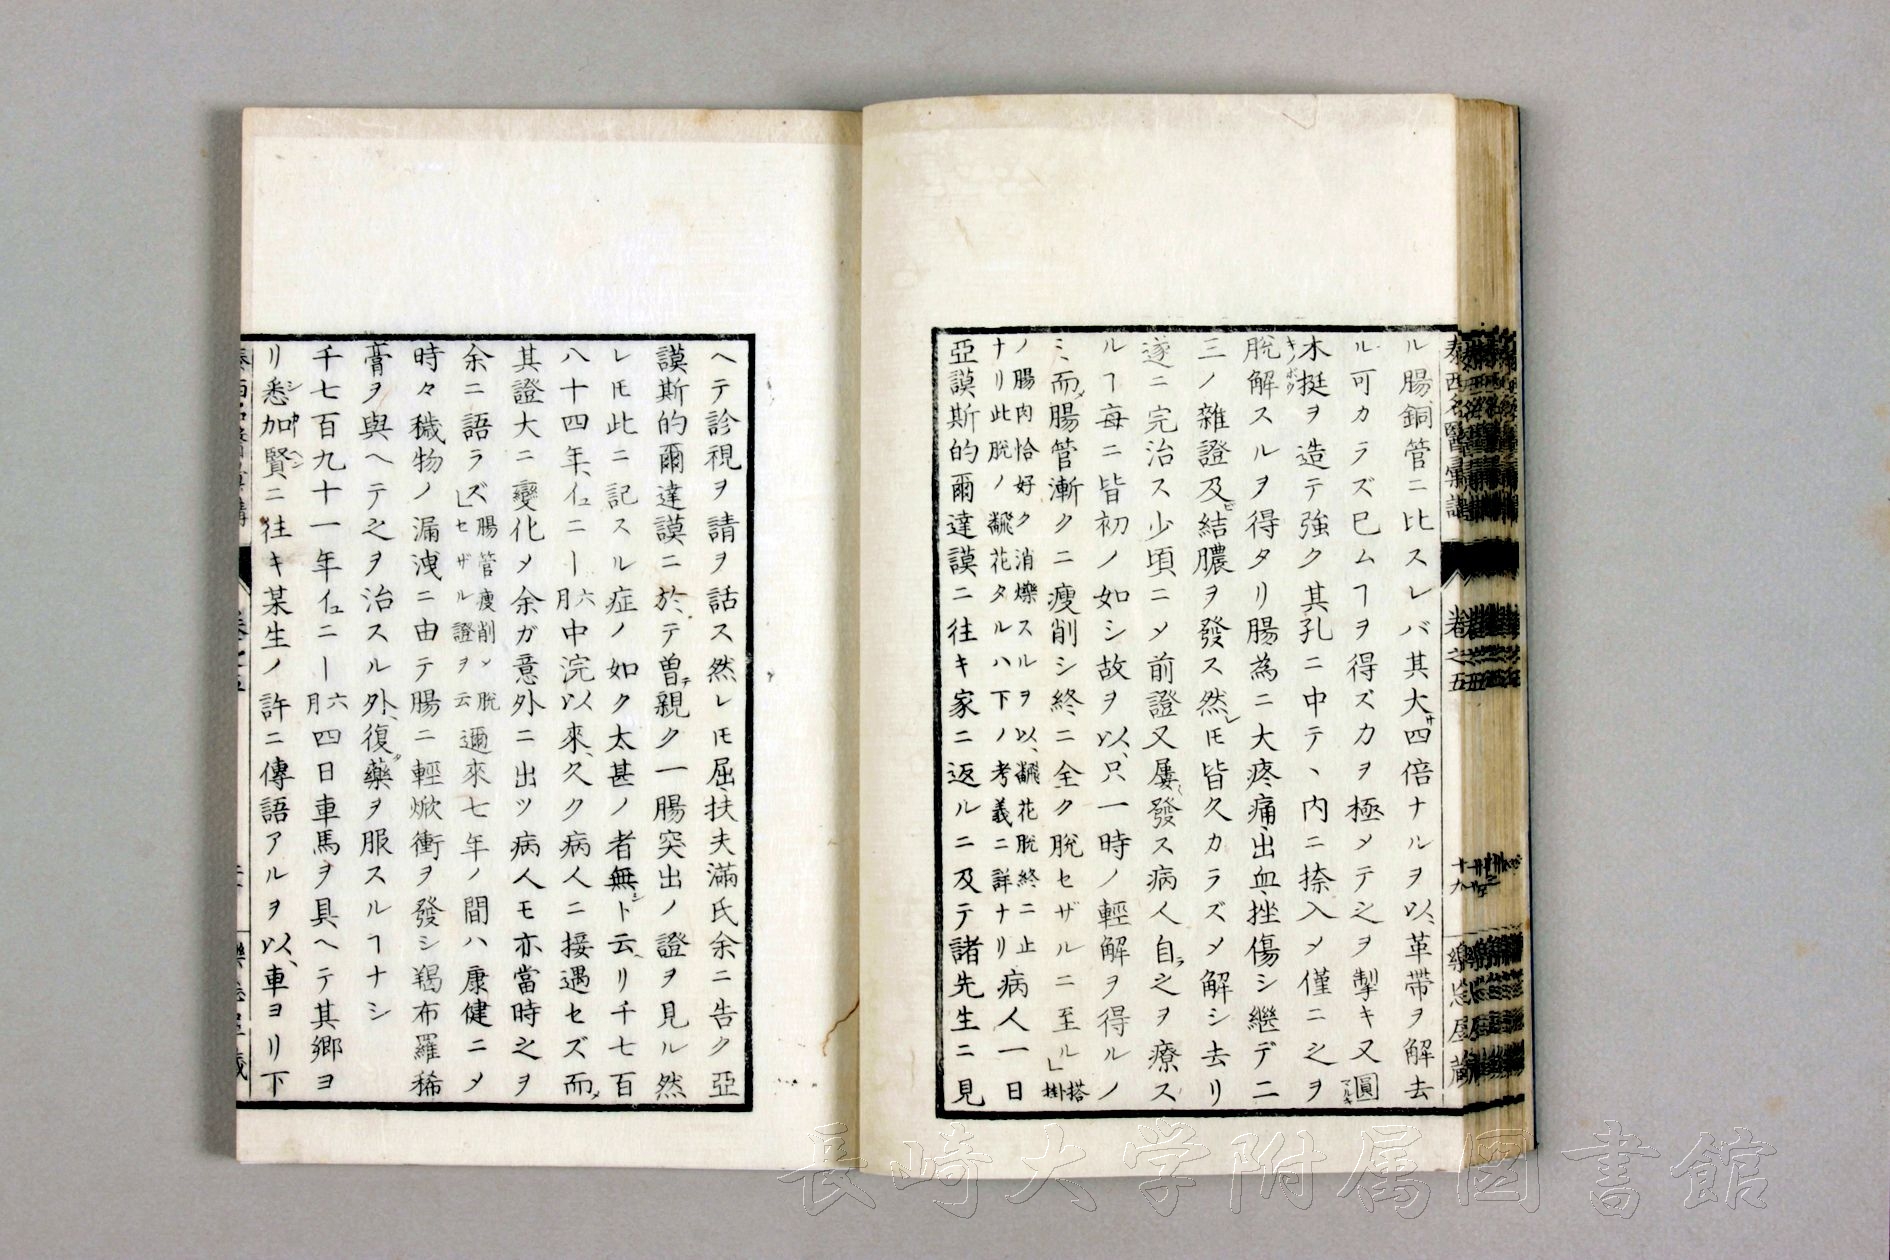 泰西名醫彙講
卷之五
十九
樂?屋藏
ル腸銅管ニ比スレバ其大サ四倍ナルヲ以、革帶ヲ解去
ル可カラズ巳ムヿヲ得ズカヲ極メテ之ヲ掣キ又圓
木挺ヲ造テ強ク其孔ニ中テ、內ニ捺入メ僅ニ之ヲ
脫解スルヲ得タリ腸為ニ大疼痛、出血、挫傷シ継デ二
三ノ雜證及ヒ結膿ヲ發ス然レ𪜈皆久カラズメ解シ去リ
遂ニ完治ス少頃ニメ前證又屢發ス病人自ラ之ヲ療ス
ルヿ每ニ皆初ノ如シ故ヲ以、只一時ノ輕解ヲ得ルノ
ミ、而メ腸管漸クニ瘦削シ終ニ全ク脫セザルニ至ル」搭掛
ノ腸肉恰好ク消爍スルヲ以、飜花脫終ニ止
ナリ此脫ノ飜花タルハ下ノ考義ニ詳ナリ病人一日
亞謨斯的爾達謨ニ往キ家ニ返ルニ及テ諸先生ニ見
ヘテ診視ヲ請ヲ話ス然レ𪜈屈扶夫滿氏余ニ告ク亞
謨斯的爾達謨ニ於テ曽テ親ク一腸突出ノ證ヲ見ル然
レ𪜈此ニ記スル症ノ如ク太甚ノ者無シト云リ千七百
八十四年、イュニー六月中浣以來、久ク病人ニ接遇セズ而メ
其證大ニ變化メ余ガ意外ニ出ツ病人モ亦當時之ヲ
余ニ語ラズ」腸管瘦削メ脫セザル證ヲ云邇來七年ノ間ハ康健ニメ
時々穢物ノ漏洩ニ由テ腸ニ輕焮衝ヲ發シ羯布羅稀
膏ヲ與ヘテ之ヲ治スル外、復タ藥ヲ服スルヿナシ
千七百九十一年イュニー六月四日車馬ヲ具ヘテ其鄉ヨ
リ悉加賢ニ往キ某生ノ許ニ傳語アルヲ以、車ヨリ下
長崎大学附属図書館